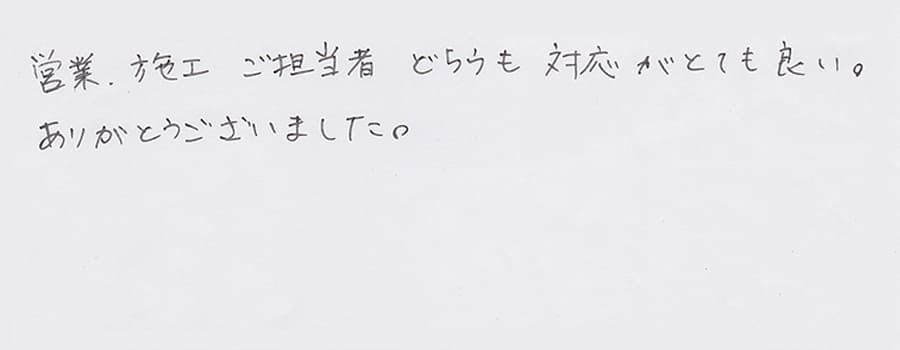 営業、施工 ご担当者 どちらも 対応がとても良い。
ありがとうございました。